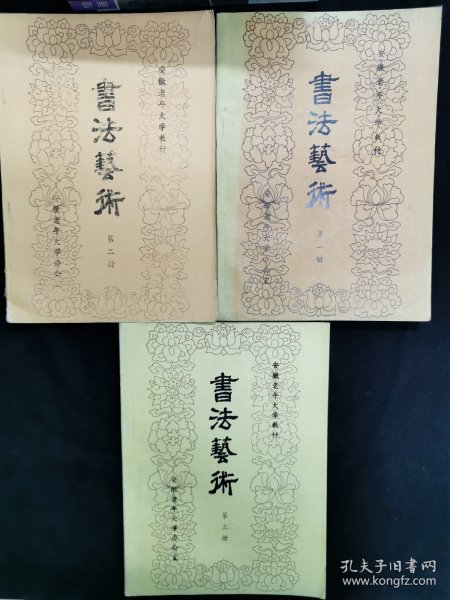 安徽老年大学教材
書法藝術
第二册
安徽老年大学办公
安徽老年大学教材
書法藝術
第一册
安徽老年大学办公室
安徽老年大学教材
書法藝術
第三册
安徽老年大学办公室
孔夫子旧书网
www.kongfz.com